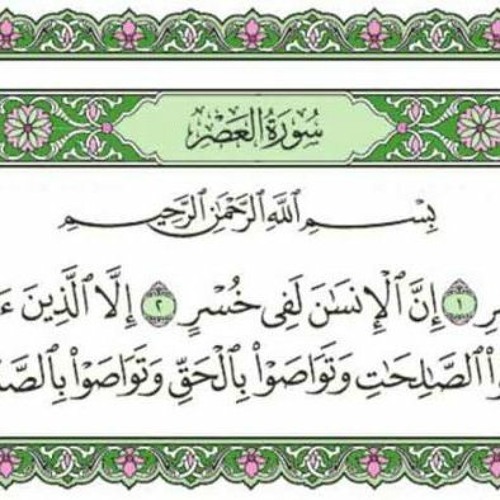 سُورَةُ ٱلْعَصْرِ
بِسْمِ ٱللَّهِ ٱلرَّحْمَٰنِ ٱلرَّحِيمِ
١ إِنَّ ٱلْإِنسَٰنَ لَفِى خُسْرٍ ٢ إِلَّا ٱلَّذِينَ
ٱلصَّٰلِحَٰتِ وَتَوَاصَوْا۟ بِٱلْحَقِّ وَتَوَاصَوْا۟